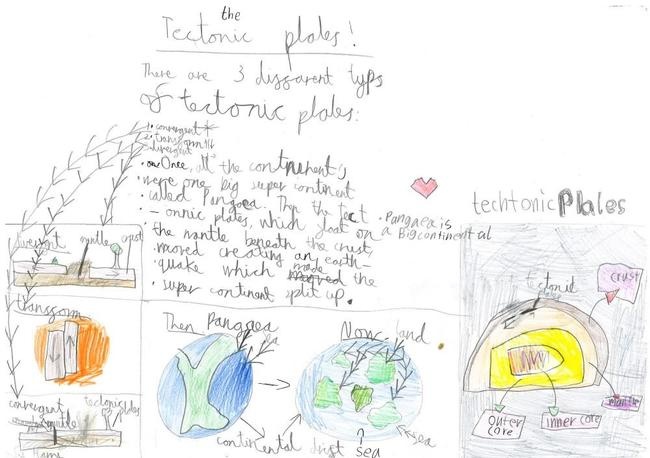 the
Tectonic plates!
There are 3 dissarent typs
of tectonic plates:
• convergent
• transform
• divergent
• one Once, all the continent's
• were one big super continent
• called Pangaea. Then the tect
- onnic plates, which float on
• the mantle beneath the crust,
• moved creating an earth-
• quake which made the
• super continent split up.
• Pangaea is
a Big continental
techtonic Plates
divergent
mantle
crust
transform
convergent
mantle
tectonic
plates
Then Pangaea
sea
Now land
continental drift
sea
sea
tectonic
crust
mantle
outer
core
inner core